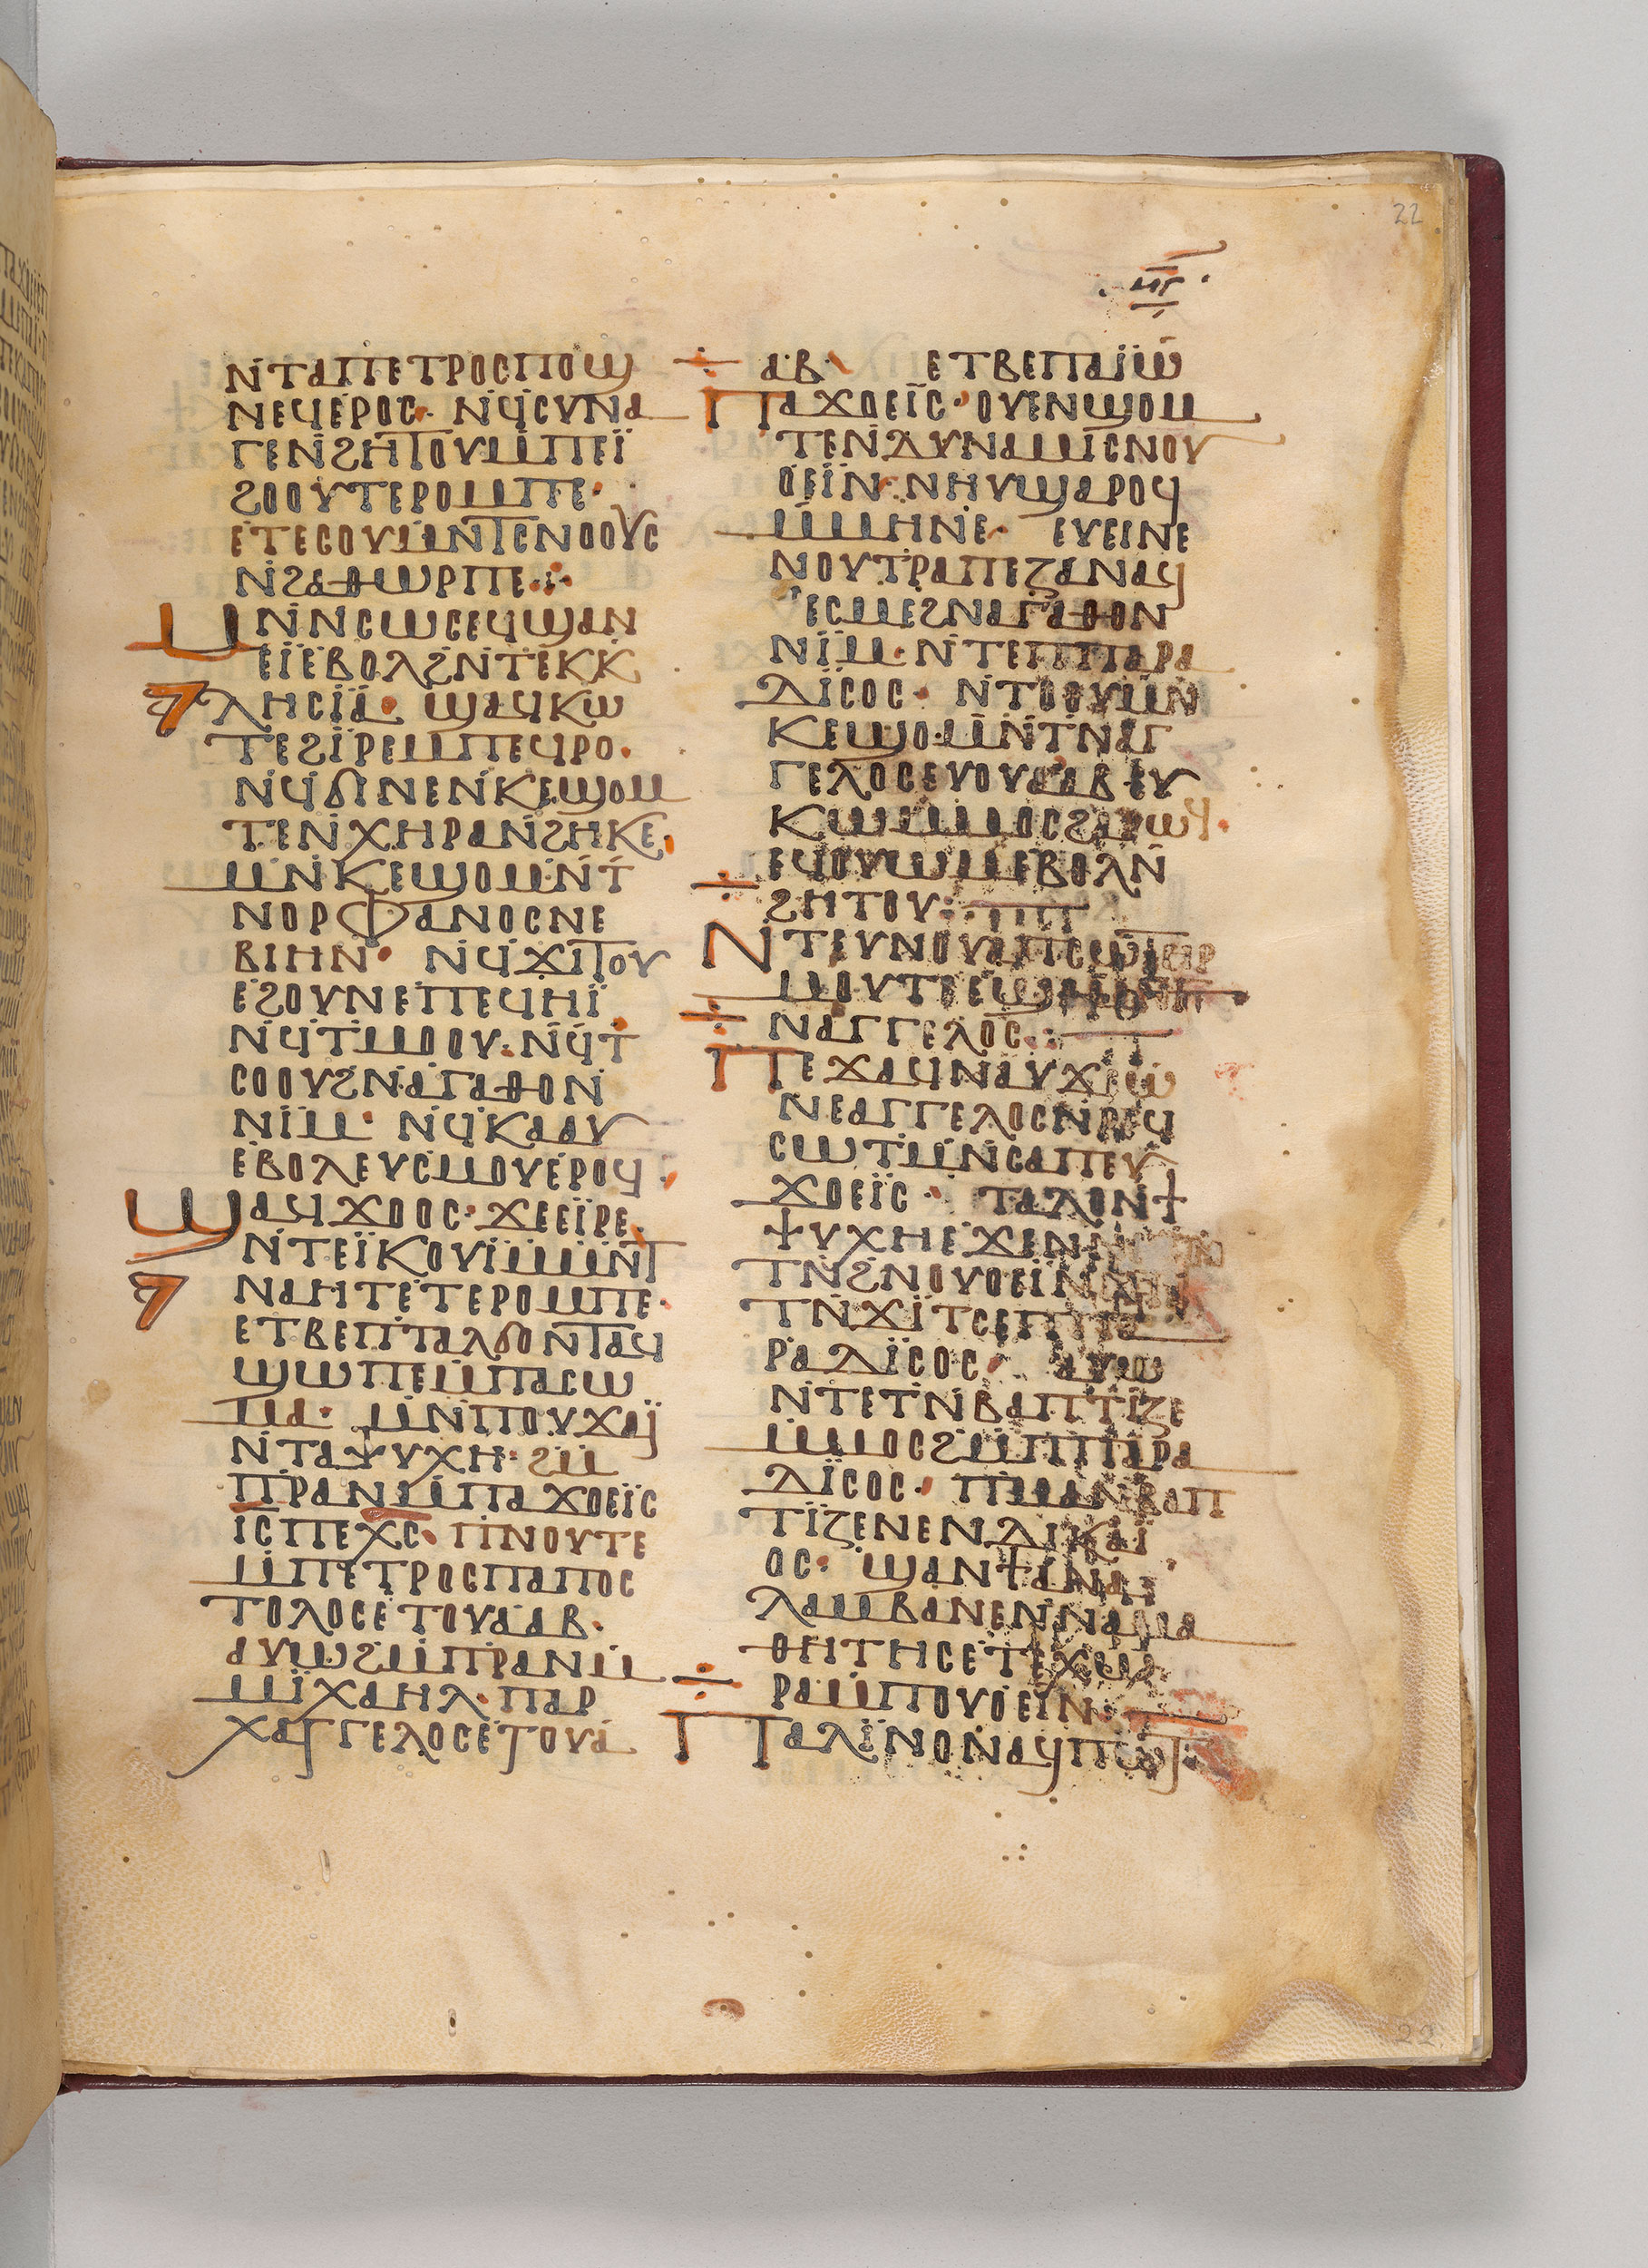 22
ⲙⲅ
ⲛ̇ⲧⲁⲡⲉⲧⲣⲟⲥⲡⲟϣ
ⲛⲉϥⲉⲣⲟⲥ· ⲛ̇ϥ̇ⲥⲩⲛⲁ
ⲅⲉⲛ̇ϩⲏⲧⲟⲩⲙ̇ⲡⲉⲓ̈
ϩⲟⲟⲩⲧⲉⲣⲟⲙⲡⲉ·
ⲉⲧⲉⲥⲟⲩⲙⲛ̇ⲧⲥⲛⲟⲟⲩⲥ
ⲛ̇ϩⲁⲑⲱⲣⲡⲉ·:·
ⲙⲛ̇ⲛ̇ⲥⲱⲥⲉϥϣⲁⲛ
ⲉⲓ̈ⲉⲃⲟⲗϩⲛ̇ⲧⲉⲕⲕ
ⲗⲏⲥⲓ̈ⲁ· ϣⲁϥⲕⲱ
ⲧⲉϩⲓ̈ⲣⲉⲙⲡⲉϥⲣⲟ·
ⲛ̇ϥ̇ϭⲓⲛⲉⲛ̇ⲕⲉϣⲟⲙ
ⲧⲉⲛ̇ⲭⲏⲣⲁⲛ̇ϩⲏⲕⲉ·
ⲙⲛ̇ⲕⲉϣⲟⲙⲛ̇ⲧ̇
ⲛⲟⲣⲫⲁⲛⲟⲥⲛⲉ
ⲃⲓⲏⲛ· ⲛ̇ϥ̇ϫⲓⲧⲟⲩ
ⲉϩⲟⲩⲛⲉⲡⲉϥⲏⲓ̈
ⲛ̇ϥ̇ⲧ̇ⲙⲙⲟⲟⲩ·ⲛ̇ϥ̇ⲧ̇
ⲥⲟⲟⲩϩⲛ̇ⲁⲅⲁⲑⲟⲛ
ⲛⲓ̈ⲙ· ⲛ̇ϥ̇ⲕⲁⲁⲩ
ⲉⲃⲟⲗⲉⲩⲥⲙⲟⲩⲉⲣⲟϥ·
ϣⲁϥϫⲟⲟⲥ· ϫⲉⲉⲓ̈ⲣⲉ
ⲛ̇ⲧⲉⲓ̈ⲕⲟⲩⲓ̈ⲙ̇ⲙⲛ̇ⲧ
ⲛⲁⲏⲧⲉⲧⲉⲣⲟⲙⲡⲉ·
ⲉⲧⲃⲉⲡⲧⲁⲗϭⲟⲛⲧⲁϥ
ϣⲱⲡⲉⲙ̇ⲡⲁⲥⲱ
ⲙⲁ· ⲙⲛ̇ⲡⲟⲩϫⲁⲓ̈
ⲛ̇ⲧⲁⲯⲩⲭⲏ· ϩⲙ
ⲡ̇ⲣⲁⲛⲙ̇ⲡⲁϫⲟⲉⲓ̈ⲥ
ⲓ̅ⲥ̅ⲡⲉⲭ̅ⲥ̅· ⲡ̇ⲛⲟⲩⲧⲉ
ⲙ̇ⲡⲉⲧⲣⲟⲥⲡⲁⲡⲟⲥ
ⲧⲟⲗⲟⲥⲉⲧⲟⲩⲁⲁⲃ·
ⲁⲩⲱϩⲙ̇ⲡ̇ⲣⲁⲛⲙ̇
ⲙⲓ̈ⲭⲁⲏⲗ·ⲡⲁⲣ
ⲭⲁⲅⲅⲉⲗⲟⲥⲉⲧⲟⲩⲁ
ⲁⲃ· ⲉⲧⲃⲉⲡⲁⲓ̈ⲱ̇
ⲡⲁϫⲟⲉⲓ̈ⲥ·ⲟⲩⲉⲛϣⲟⲙ
ⲧⲉⲛ̇ⲇⲩⲛⲁⲙⲓⲥⲛⲟⲩ
ⲟⲉⲓ̈ⲛ·ⲛⲏⲩϣⲁⲣⲟϥ
ⲙ̇ⲙⲏⲛⲉ· ⲉⲩⲉⲓⲛⲉ
ⲛⲟⲩⲧⲣⲁⲡⲉⲍⲁⲛⲁϥ
ⲉⲥⲙⲉϩⲛⲁⲅⲁⲑⲟⲛ
ⲛⲓ̈ⲙ·ⲛ̇ⲧⲉⲡⲡⲁⲣⲁ
ⲇⲓ̈ⲥⲟⲥ· ⲛ̇ⲧⲟⲟⲩⲙⲛ̇
ⲕⲉϣⲟⲙⲛ̇ⲧ̇ⲛⲁⲅ
ⲅⲉⲗⲟⲥⲉⲩⲟⲩⲁⲁⲃⲉⲩ
ⲕⲱⲙ̇ⲙⲟⲥϩⲁⲣⲱϥ·
ⲉϥⲟⲩⲱⲙⲉⲃⲟⲗⲛ̇
ϩⲏⲧⲟⲩ:
ⲛ̇ⲧⲉⲩⲛⲟⲩⲁⲡⲥⲱⲧⲏⲣ
ⲙⲟⲩⲧⲉⲉϣⲟⲙⲛⲧ
ⲛⲁⲅⲅⲉⲗⲟⲥ·:
ⲡⲉϫⲁϥⲛⲁⲩϫⲉⲱ̇
ⲛⲉⲁⲅⲅⲉⲗⲟⲥⲛ̇ⲣⲉϥ
ⲥⲱⲧⲙ̇ⲛ̇ⲥⲁⲡⲉⲩ
ϫⲟⲉⲓ̈ⲥ· ⲧⲁⲗⲟⲛϯ
ⲯⲩⲭⲏⲉϫⲉⲛ
ⲧⲛ̇ϩⲛ̇ⲟⲩⲟⲉⲓⲛ
ⲧⲛ̇ϫⲓ̈ⲧⲥⲉⲡⲡⲁ
ⲣⲁⲇⲓ̈ⲥⲟⲥ· ⲁⲩⲱ
ⲛ̇ⲧⲉⲧⲛ̇ⲃⲁⲡⲧⲓⲍⲉ
ⲙ̇ⲙⲟⲥϩⲙ̇ⲡⲡⲁⲣⲁ
ⲇⲓ̈ⲥⲟⲥ· ⲡⲙⲁⲛⲃⲁⲡ
ⲧⲓ̈ⲍⲉⲛⲉⲛⲇⲓⲕⲁⲓ̈
ⲟⲥ· ϣⲁⲛϯⲁⲛⲁ
ⲗⲁⲙⲃⲁⲛⲉⲛ̇ⲛⲁⲙⲁ
ⲑⲏⲧⲏⲥⲉⲧⲉⲭⲱ
ⲣⲁⲙ̇ⲡⲟⲩⲟⲉⲓⲛ:
ⲡⲁⲗⲓ̈ⲛⲟⲛⲁϥⲡⲱⲧ·
22